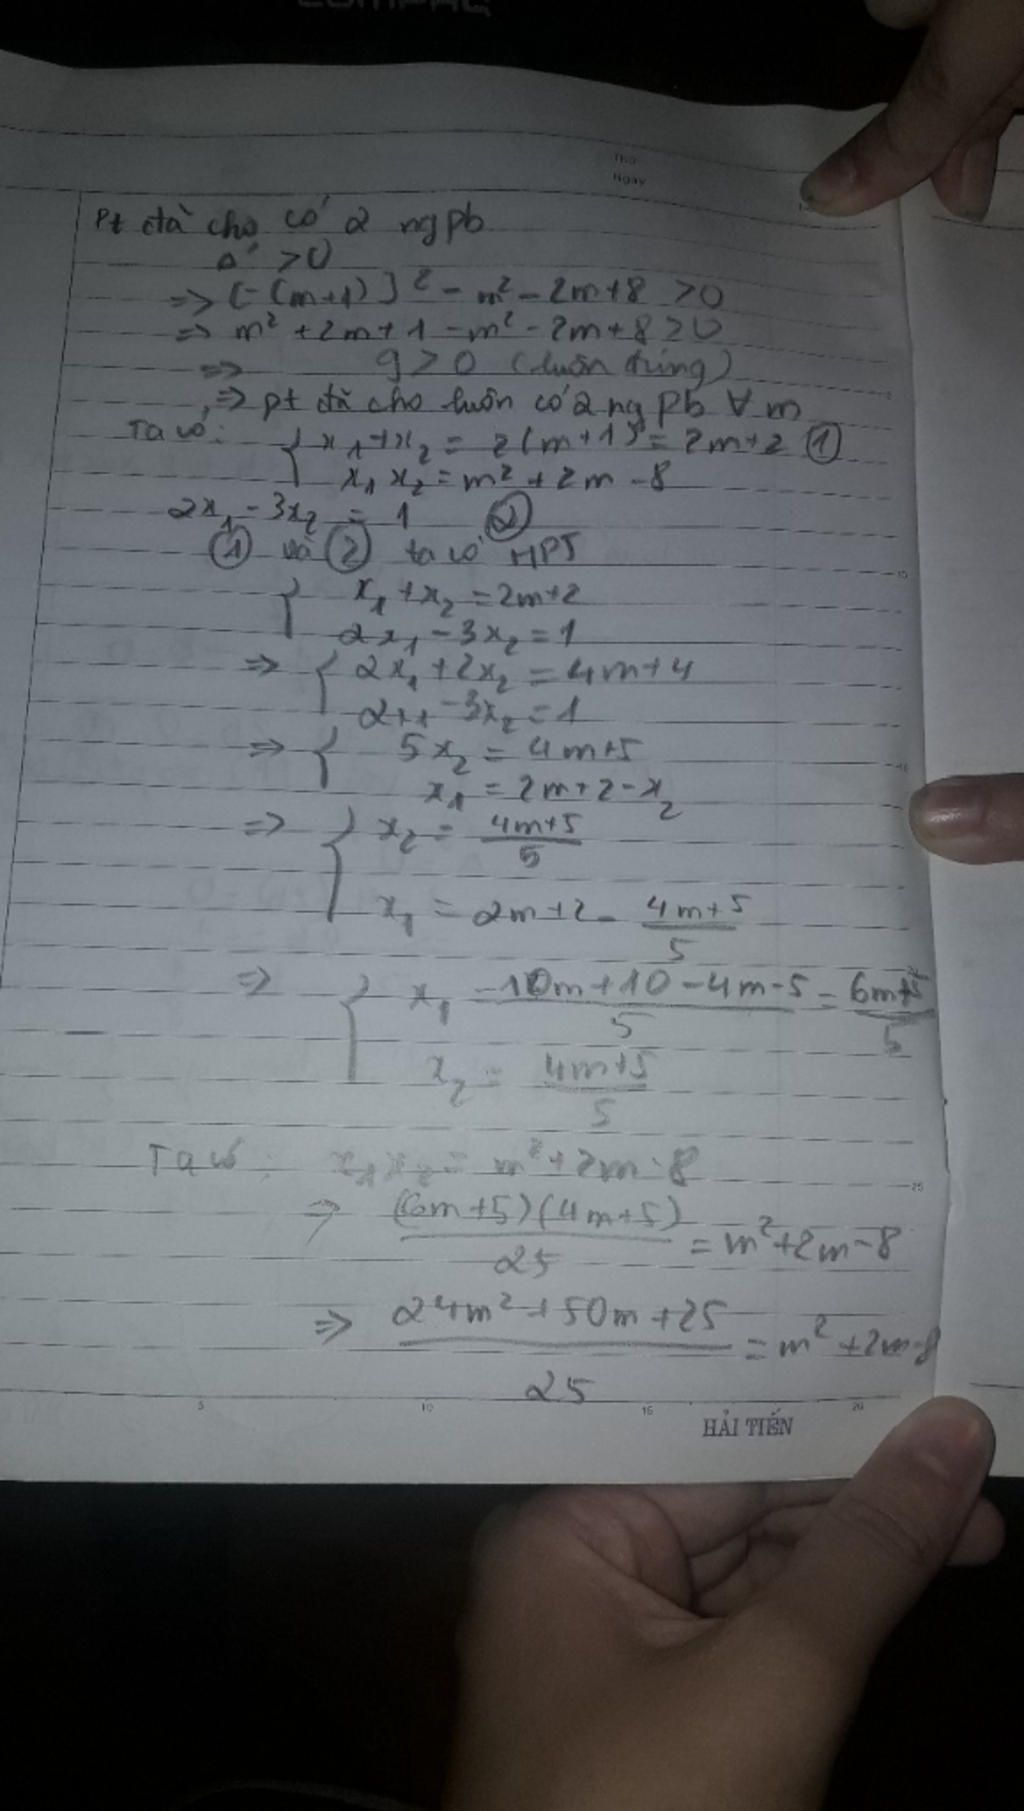 COMPAQ
Thứ
Ngày
Pt đã cho có 2 ng pb
Δ' > 0
=> [-(m+1)]² - m² - 2m + 8 > 0
=> m² + 2m + 1 - m² - 2m + 8 > 0
=> 9 > 0 (luôn đúng)
=> pt đã cho luôn có 2 ng pb ∀ m
Ta có: { x₁ + x₂ = 2(m+1) = 2m+2 ①
x₁ x₂ = m² + 2m - 8
2x₁ - 3x₂ = 1 ②
① và ② ta có HPT
{ x₁ + x₂ = 2m+2
2x₁ - 3x₂ = 1
=> { 2x₁ + 2x₂ = 4m+4
2x₁ - 3x₂ = 1
=> { 5x₂ = 4m+5
x₁ = 2m+2-x₂
=> { x₂ = 4m+5 / 5
x₁ = 2m+2 - 4m+5 / 5
=> { x₁ = 10m+10-4m-5 / 5 = 6m+5 / 5
x₂ = 4m+5 / 5
Ta có: x₁x₂ = m² + 2m - 8
=> (6m+5)(4m+5) / 25 = m² + 2m - 8
=> 24m² + 50m + 25 / 25 = m² + 2m - 8
5 10 15 20
HẢI TIẾN